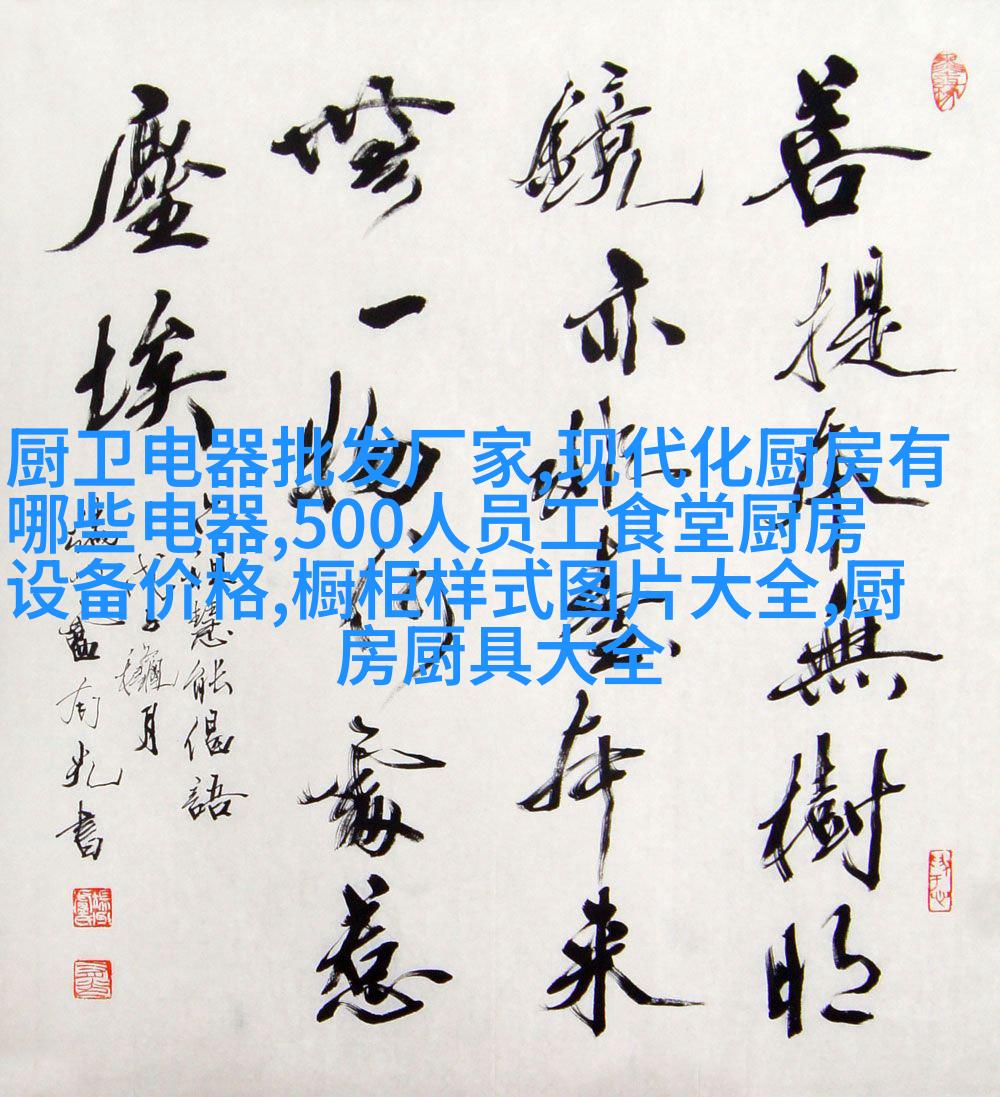 厨卫电器批发厂家,现代化厨房有
哪些电器,500人员工食堂厨房
设备价格,橱柜样式图片大全,厨
房厨具大全
菩提本無樹明
鏡亦非臺本來
無一物何處惹
塵埃
六祖慧能偈語
戊子穐月
書